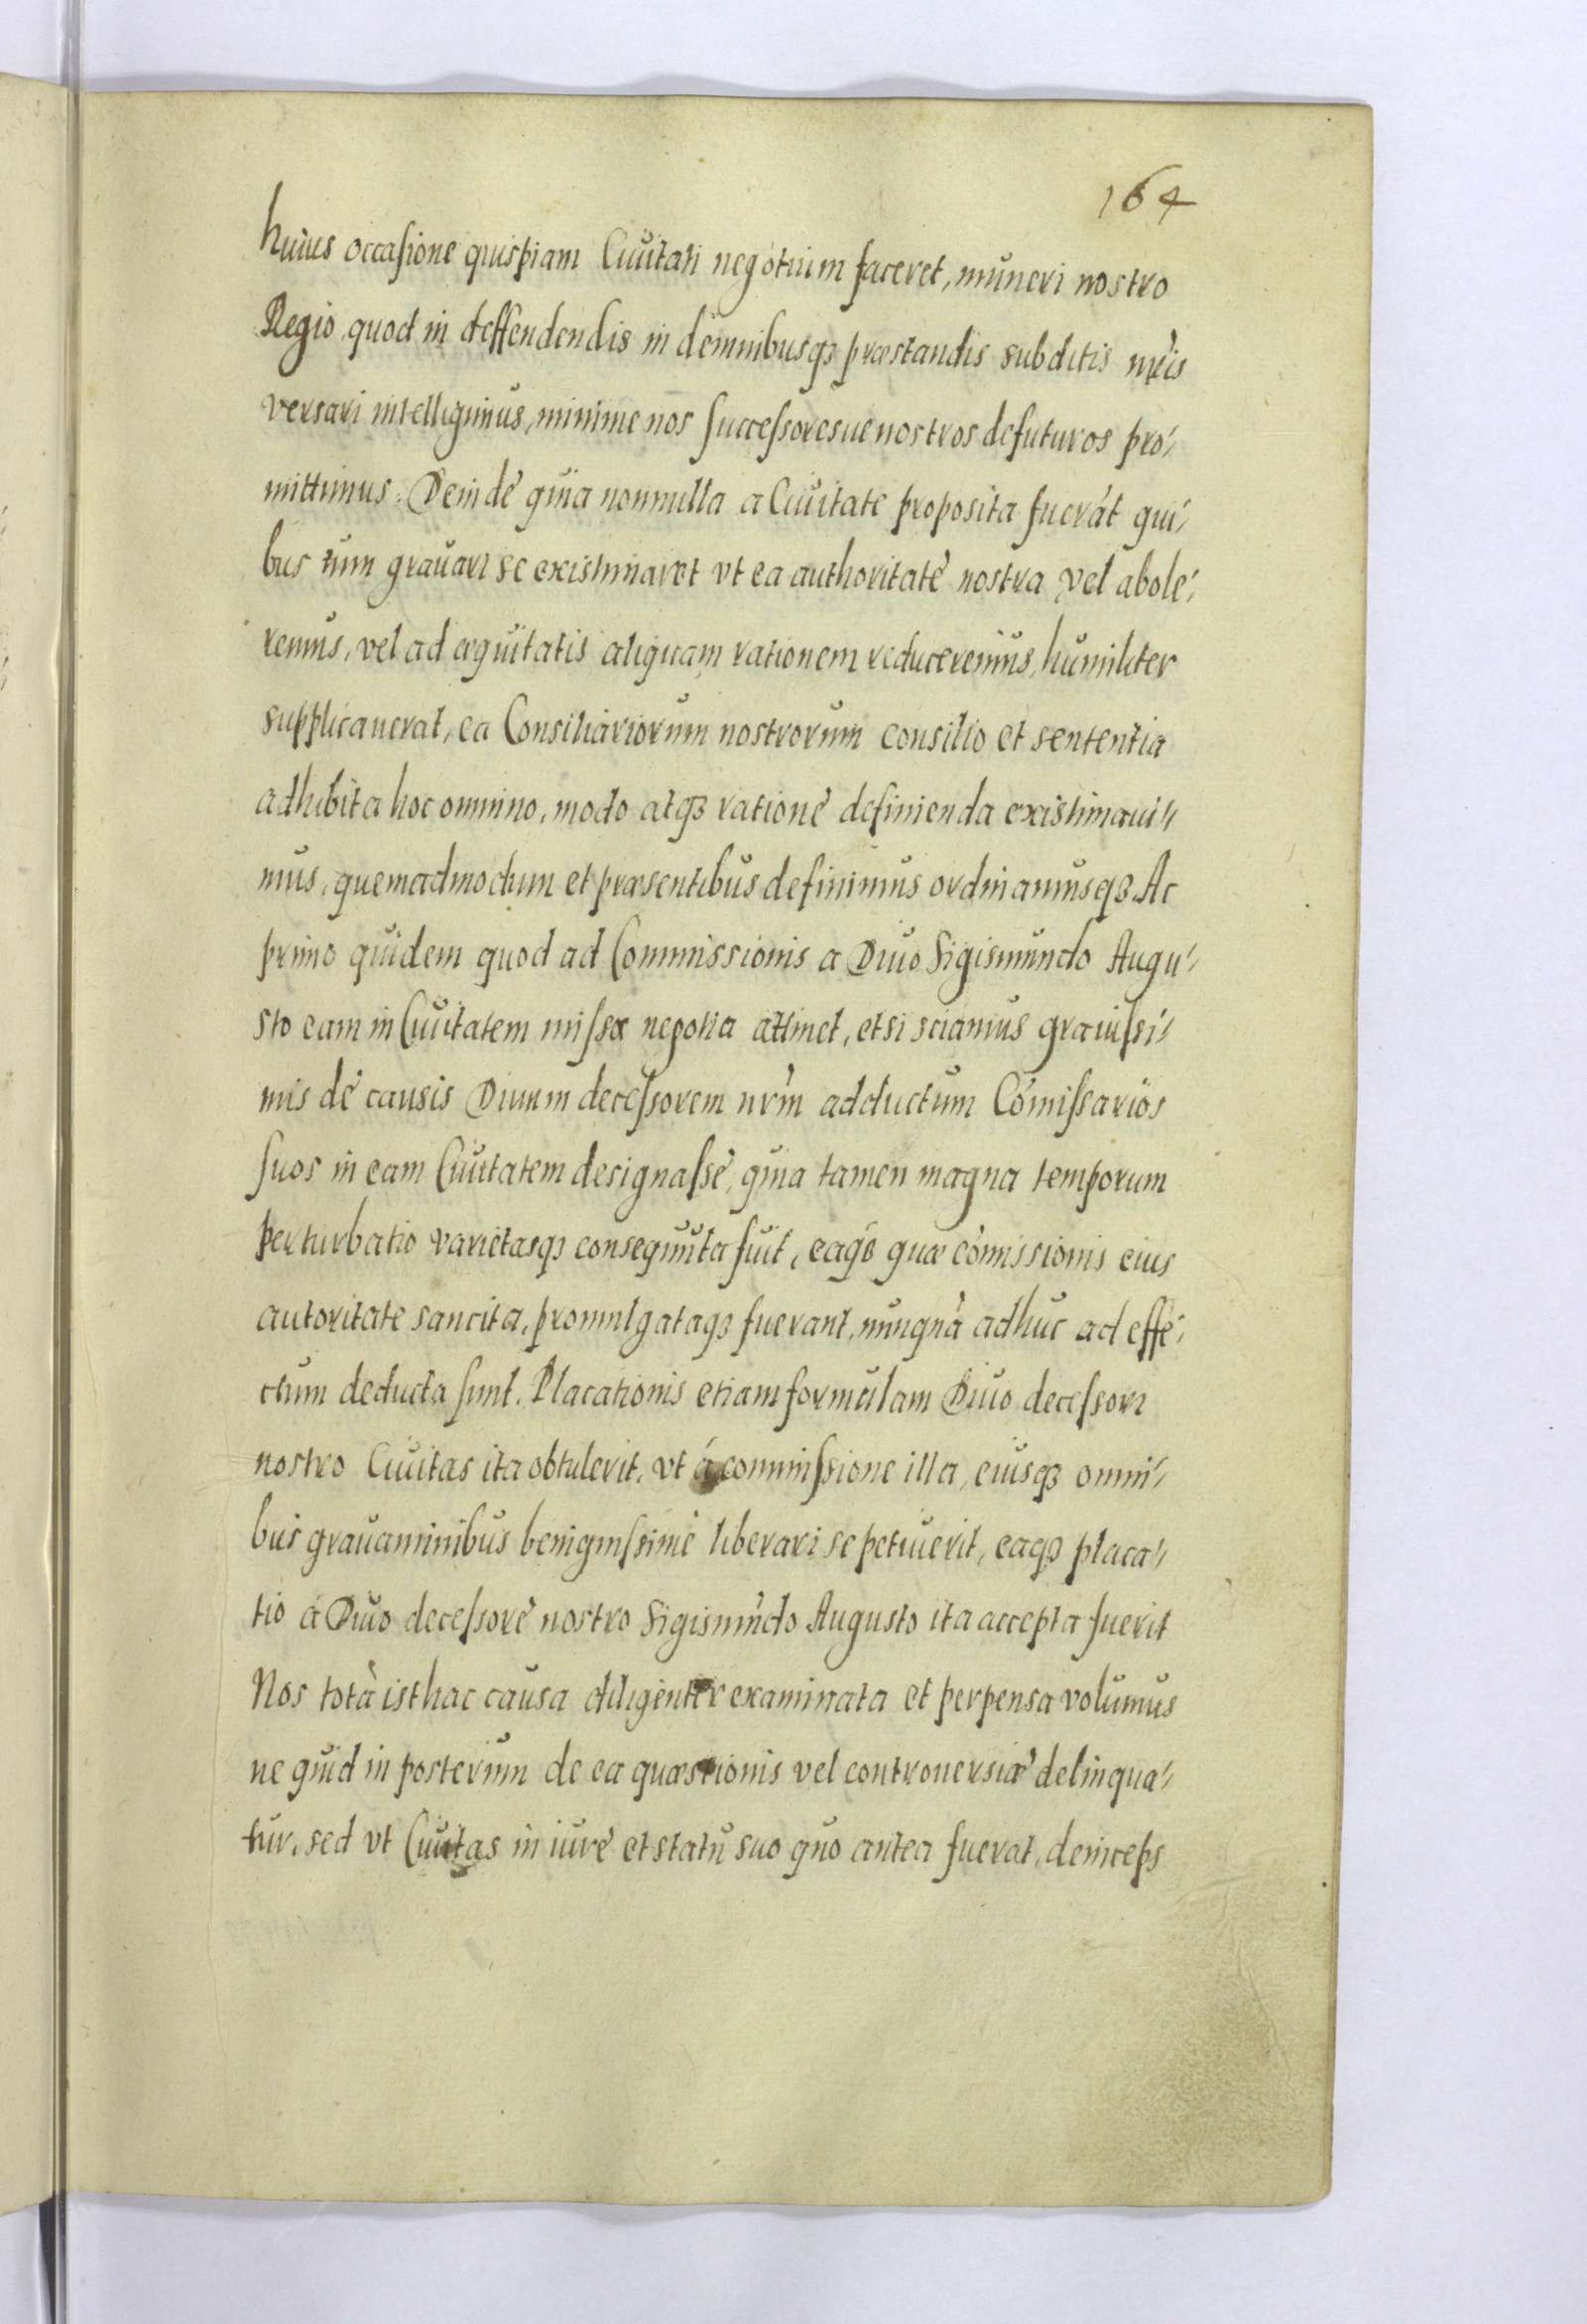 164
huius occasione quispiam Ciuitati negotium faceret, muneri nostro
Regio quod in deffendendis in demnibusqꝫ præstandis subditis nr̃is
versari intelligimus, minime nos successoresue nostros defuturos pro-
mittimus. Deinde quia nonnulla a Ciuitate proposita fuerãt qui-
bus tum grauari se existimaret vt ea authoritate nostra vel abole-
remus, vel ad æquitatis aliquam rationem reduceremus, humiliter
supplicauerat, ea Consiliariorum nostrorum consilio et sententia
adhibita hoc omnino, modo atqꝫ ratione definienda existimaui-
mus, quemadmodum et præsentibus definimus ordinamusqꝫ. Ac
primo quidem quod ad Commissionis a Diuo Sigismundo Augu-
sto eam in Ciuitatem missæ negotia attinet, etsi sciamus grauissi-
mis de causis Diuum decessorem nr̃m adductum Cõmissarios
suos in eam Ciuitatem designasse, quia tamen magna temporum
perturbatio varietasqꝫ consequuta fuit, eaqꝫ quæ cõmissionis eius
autoritate sancita, promulgataqꝫ fuerant, nunquã adhuc ad effe-
ctum deducta sunt. Placationis etiam formulam Diuo decessori
nostro Ciuitas ita obtulerit, vt á commissione illa, eiusqꝫ omni-
bus grauaminibus benignissime liberari se petiuerit, eaqꝫ placa-
tio á Diuo decessore nostro Sigismũdo Augusto ita accepta fuerit
Nos tota isthac causa diligenter examinata et perpensa volumus
ne quid in posterum de ea quæstionis vel controuersiæ delinqua-
tur, sed vt Ciuitas in iure et statu suo quo antea fuerat, deinceps